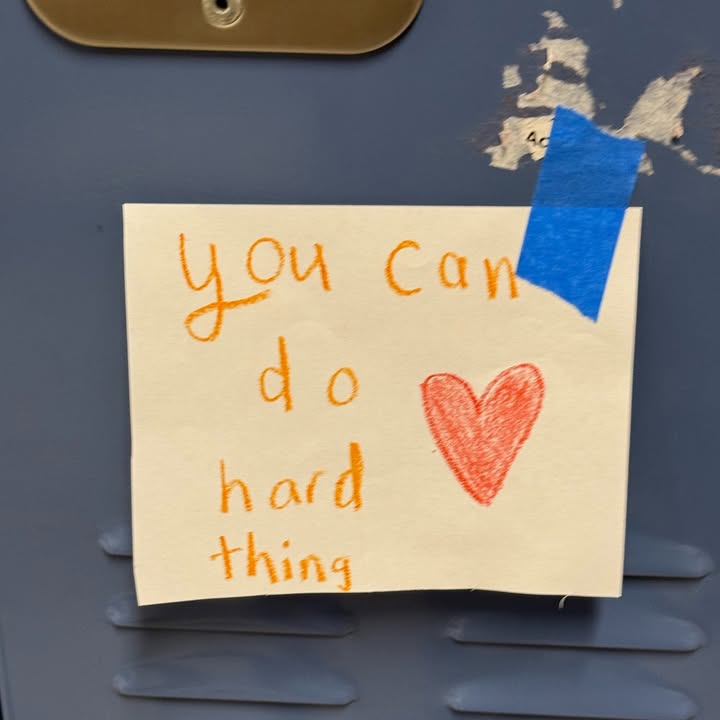 you can
do
hard
thing